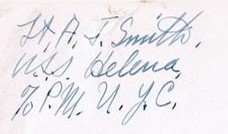 Lt. A. J. Smith.
U.S.S. Helena,
℅ P.M. N.Y.C.